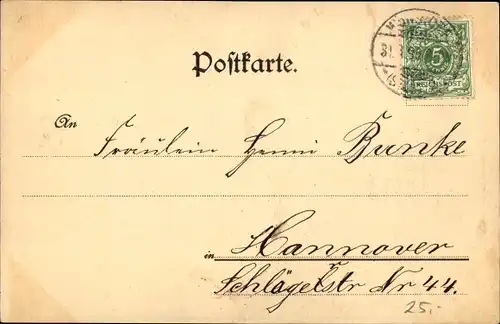 Postkarte.
5
REICHSPOST
An Fräulein Henni Bunke
in Hannover
Schlägelstr Nr 44.
25.-